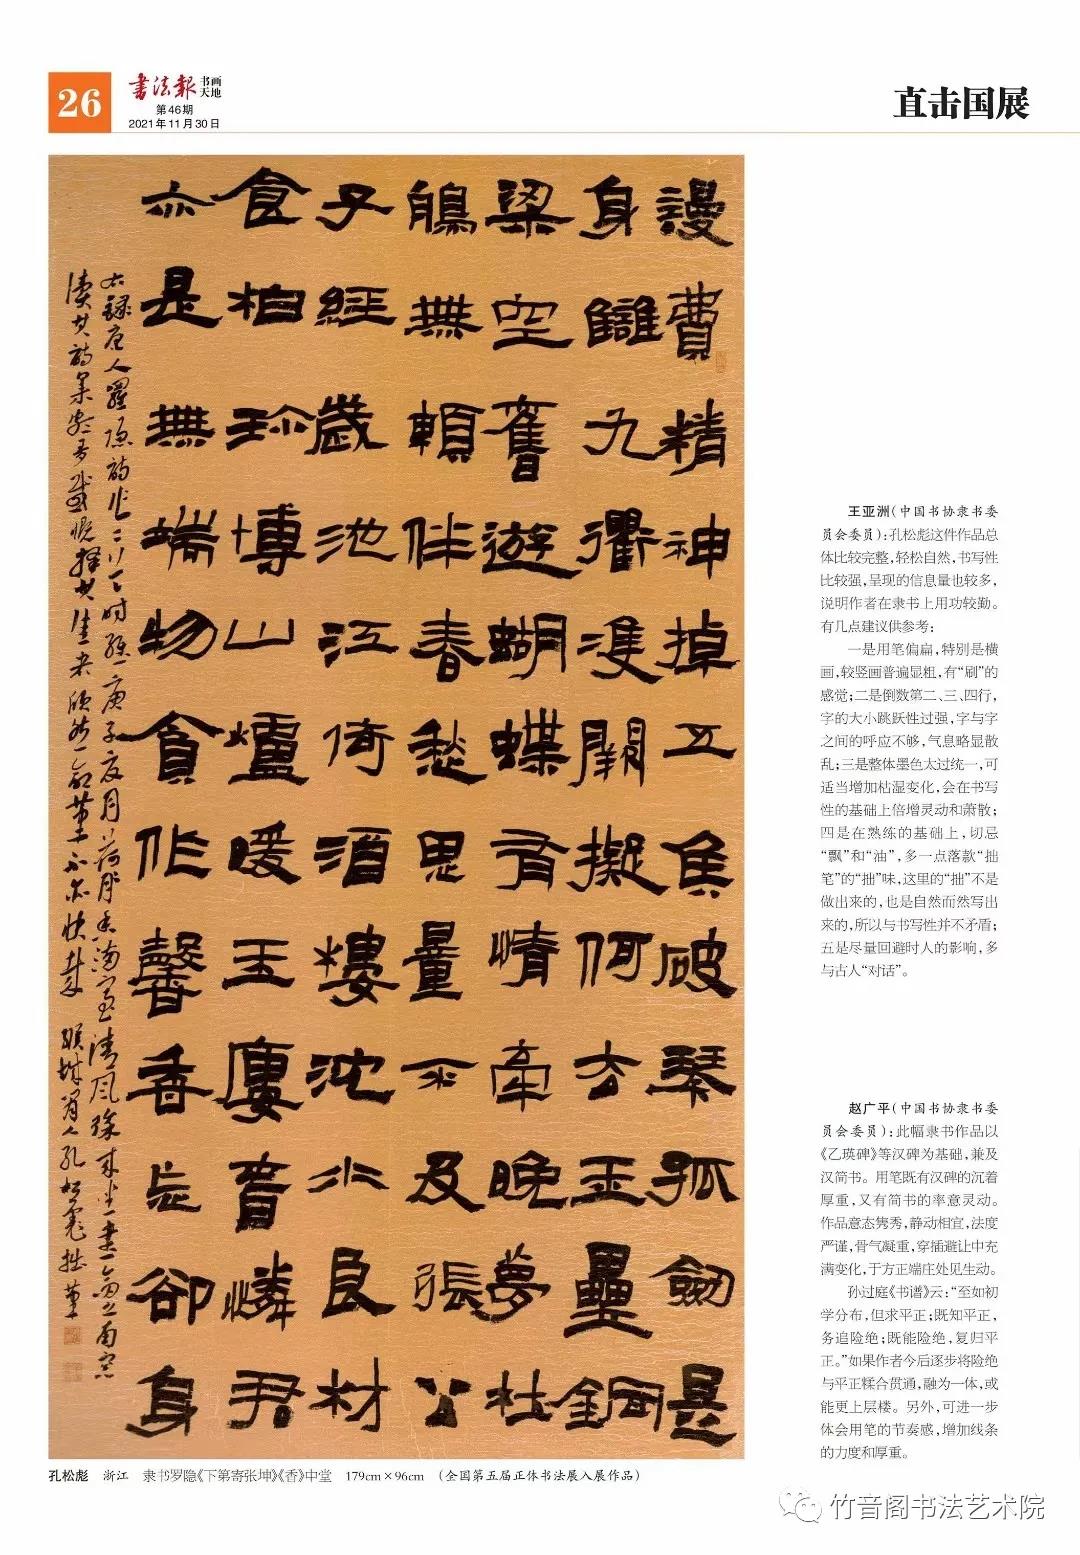 26
书法报 书画天地
第46期
2021年11月30日
直击国展
謾費精神掉五矦破琴孤劒是
身讎九衢雙闕擬何去玉壘銅
梁空舊遊蝴蝶有情牽晚夢杜
鵑無賴伴春愁思量不及張公
子經歲池江倚酒樓沈水良材
食柏珍博山爐暖玉樓春憐君
亦是無端物貪作馨香忘卻身
右録唐人羅隱詩作二首
王亚洲(中国书协隶书委
员会委员):孔松彪这件作品总
体比较完整,轻松自然,书写性
比较强,呈现的信息量也较多,
说明作者在隶书上用功较勤。
有几点建议供参考:
一是用笔偏扁,特别是横
画,较竖画普遍显粗,有“刷”的
感觉;二是倒数第二、三、四行,
字的大小跳跃性过强,字与字
之间的呼应不够,气息略显散
乱;三是整体墨色太过统一,可
适当增加枯湿变化,会在书写
性的基础上倍增灵动和萧散;
四是在熟练的基础上,切忌
“飘”和“油”,多一点落款“拙
笔”的“拙”味,这里的“拙”不是
做出来的,也是自然而然写出
来的,所以与书写性并不矛盾;
五是尽量回避时人的影响,多
与古人“对话”。
赵广平(中国书协隶书委
员会委员):此幅隶书作品以
《乙瑛碑》等汉碑为基础,兼及
汉简书。用笔既有汉碑的沉着
厚重,又有简书的率意灵动。
作品意态隽秀,静动相宜,法度
严谨,骨气凝重,穿插避让中充
满变化,于方正端庄处见生动。
孙过庭《书谱》云:“至如初
学分布,但求平正;既知平正,
务追险绝;既能险绝,复归平
正。”如果作者今后逐步将险绝
与平正糅合贯通,融为一体,或
能更上层楼。另外,可进一步
体会用笔的节奏感,增加线条
的力度和厚重。
孔松彪 浙江 隶书罗隐《下第寄张坤》《香》中堂 179cm×96cm (全国第五届正体书法展入展作品)
竹音阁书法艺术院